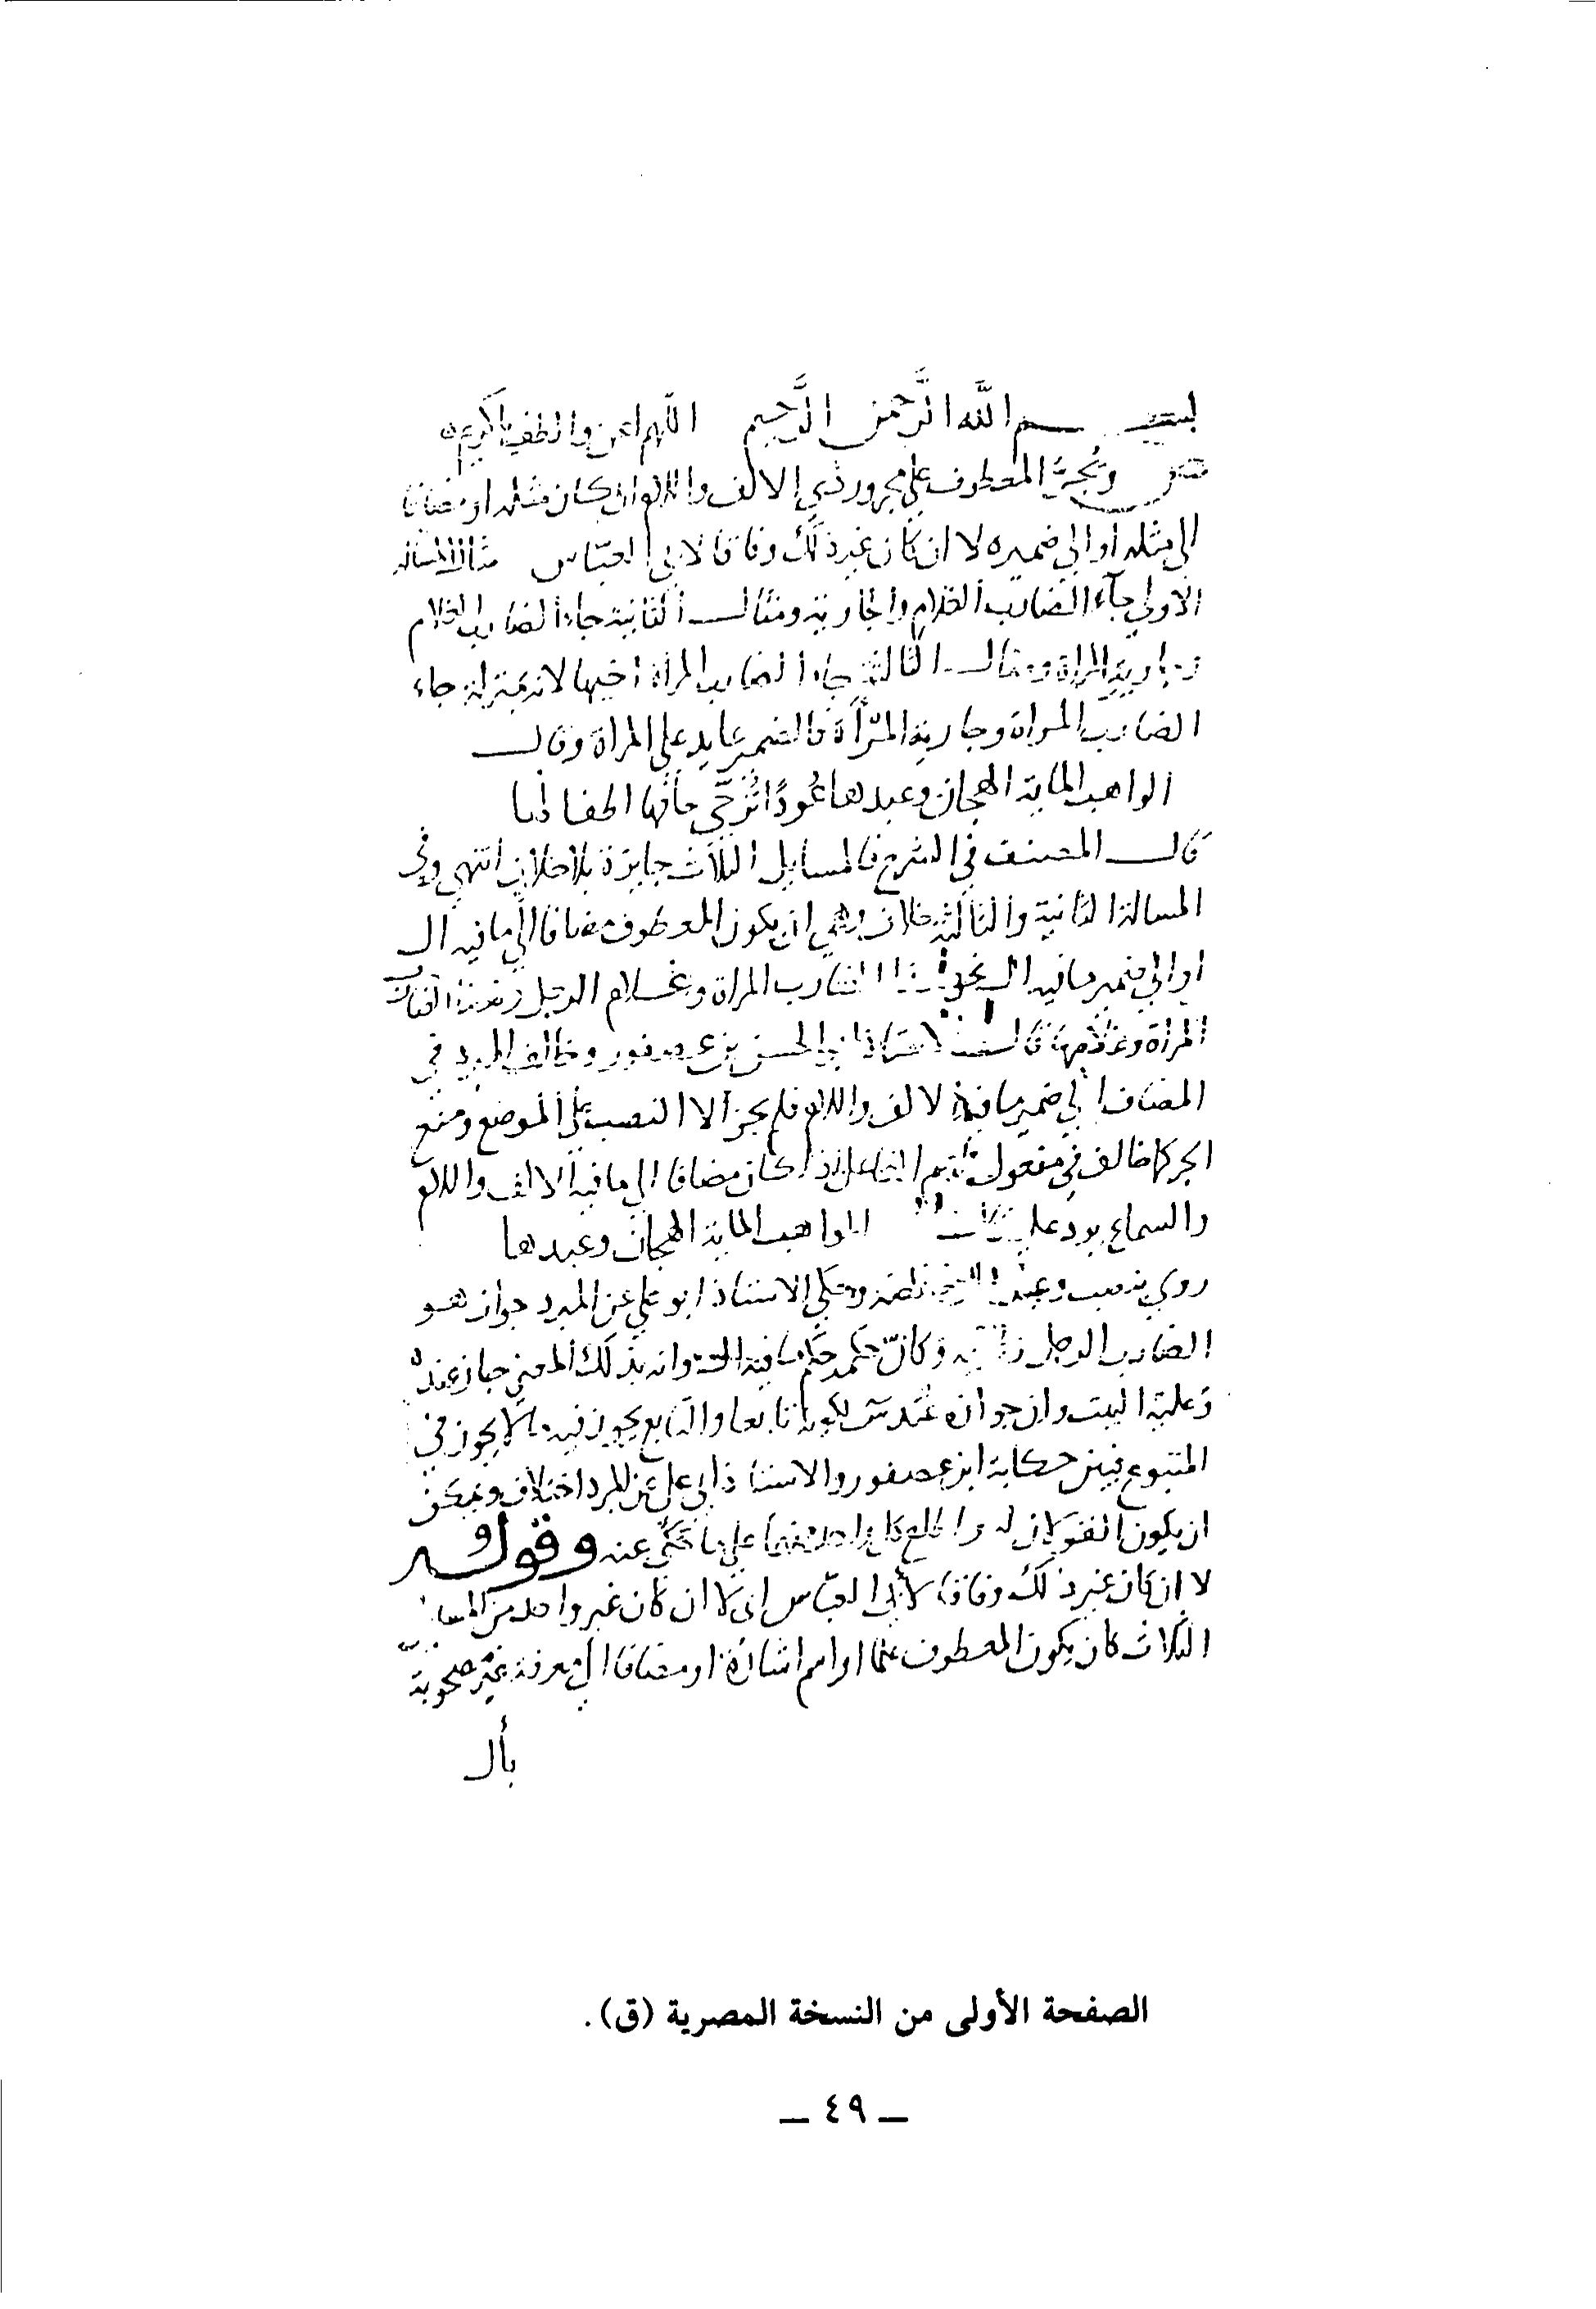 بسم الله الرَّحمن الرَّحيم اللهم اعن والطف يا كريم
ص ويُجرّ المعطوف على مجرور ذي الالف واللام ان كان مثله او مضافا
الى مثله او الى ضميره لا ان كان غير ذلك وفاقا لابي العبّاس مثال المسالة
الاولى جآء الضارب الغلام والجارية ومثال الثانية جاء الضارب الغلام
وجارية المراة ومثال الثالثة جاء الضارب المراة اخيها لانه بمنزلة جاء
الضارب المراة وجارية المرأة فالضمير عايد على المراة وقال
الواهب الماية الهجان وعبدها عُوذًا تُزَجّى خلفها اطفالها
قال المصنف في الشرح فالمسايل الثلاث جايزة بلا خلاف انتهى وفي
المسالة الثانية والثالثة خلاف وهي ان يكون المعطوف مضافا الى ما فيه ال
او الى ضمير ما فيه ال نحو هذا الضارب المراة وغلام الرجل وهذا الضارب
المراة وغلامها قال الاستاذ ابو الحسن بن عصفور وخالف المبرد في
المضاف الى ضمير ما فيه الالف واللام فلم يجز الا النصب على الموضع ومنع
الجر كما خالف في مفعول اسم الفاعل اذا كان مضافا الى ما فيه الالف واللام
والسماع يرد عليه قال الواهب الماية الهجان وعبدها
روي بنصب وعبدها وخفضه وحكى الاستاذ ابو علي عن المبرد جواز هو
الضارب الرجل وكانّ حكمه حكم ما فيه ال وانه بذلك المعنى جاز عنده
وعليه البيت وان جوازه عند س لكونه تابعا والتابع يجوز فيه ما لا يجوز في
المتبوع فبين حكاية ابن عصفور والاستاذ ابي علي عن المبرد اختلاف ويمكن
ان يكون القولان له واطلع كل واحد منهما على ما حكى عنه وقوله
لا ان كان غير ذلك وفاقا لأبي العبّاس اي لا ان كان غير واحد من المسايل
الثلاث كان يكون المعطوف علما او اسم اشارة او مضافا الى معرفة غير مصحوبة
بأل
الصفحة الأولى من النسخة المصرية (ق).
— ٤٩ —